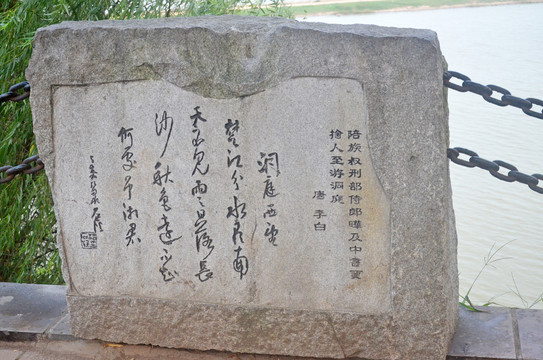 陪族叔刑部侍郎曄及中書賈
捨人至游洞庭
唐 李白
洞庭西望
楚江分水尽南
天不見雲日落長
沙秋色遠不知
何處吊湘君